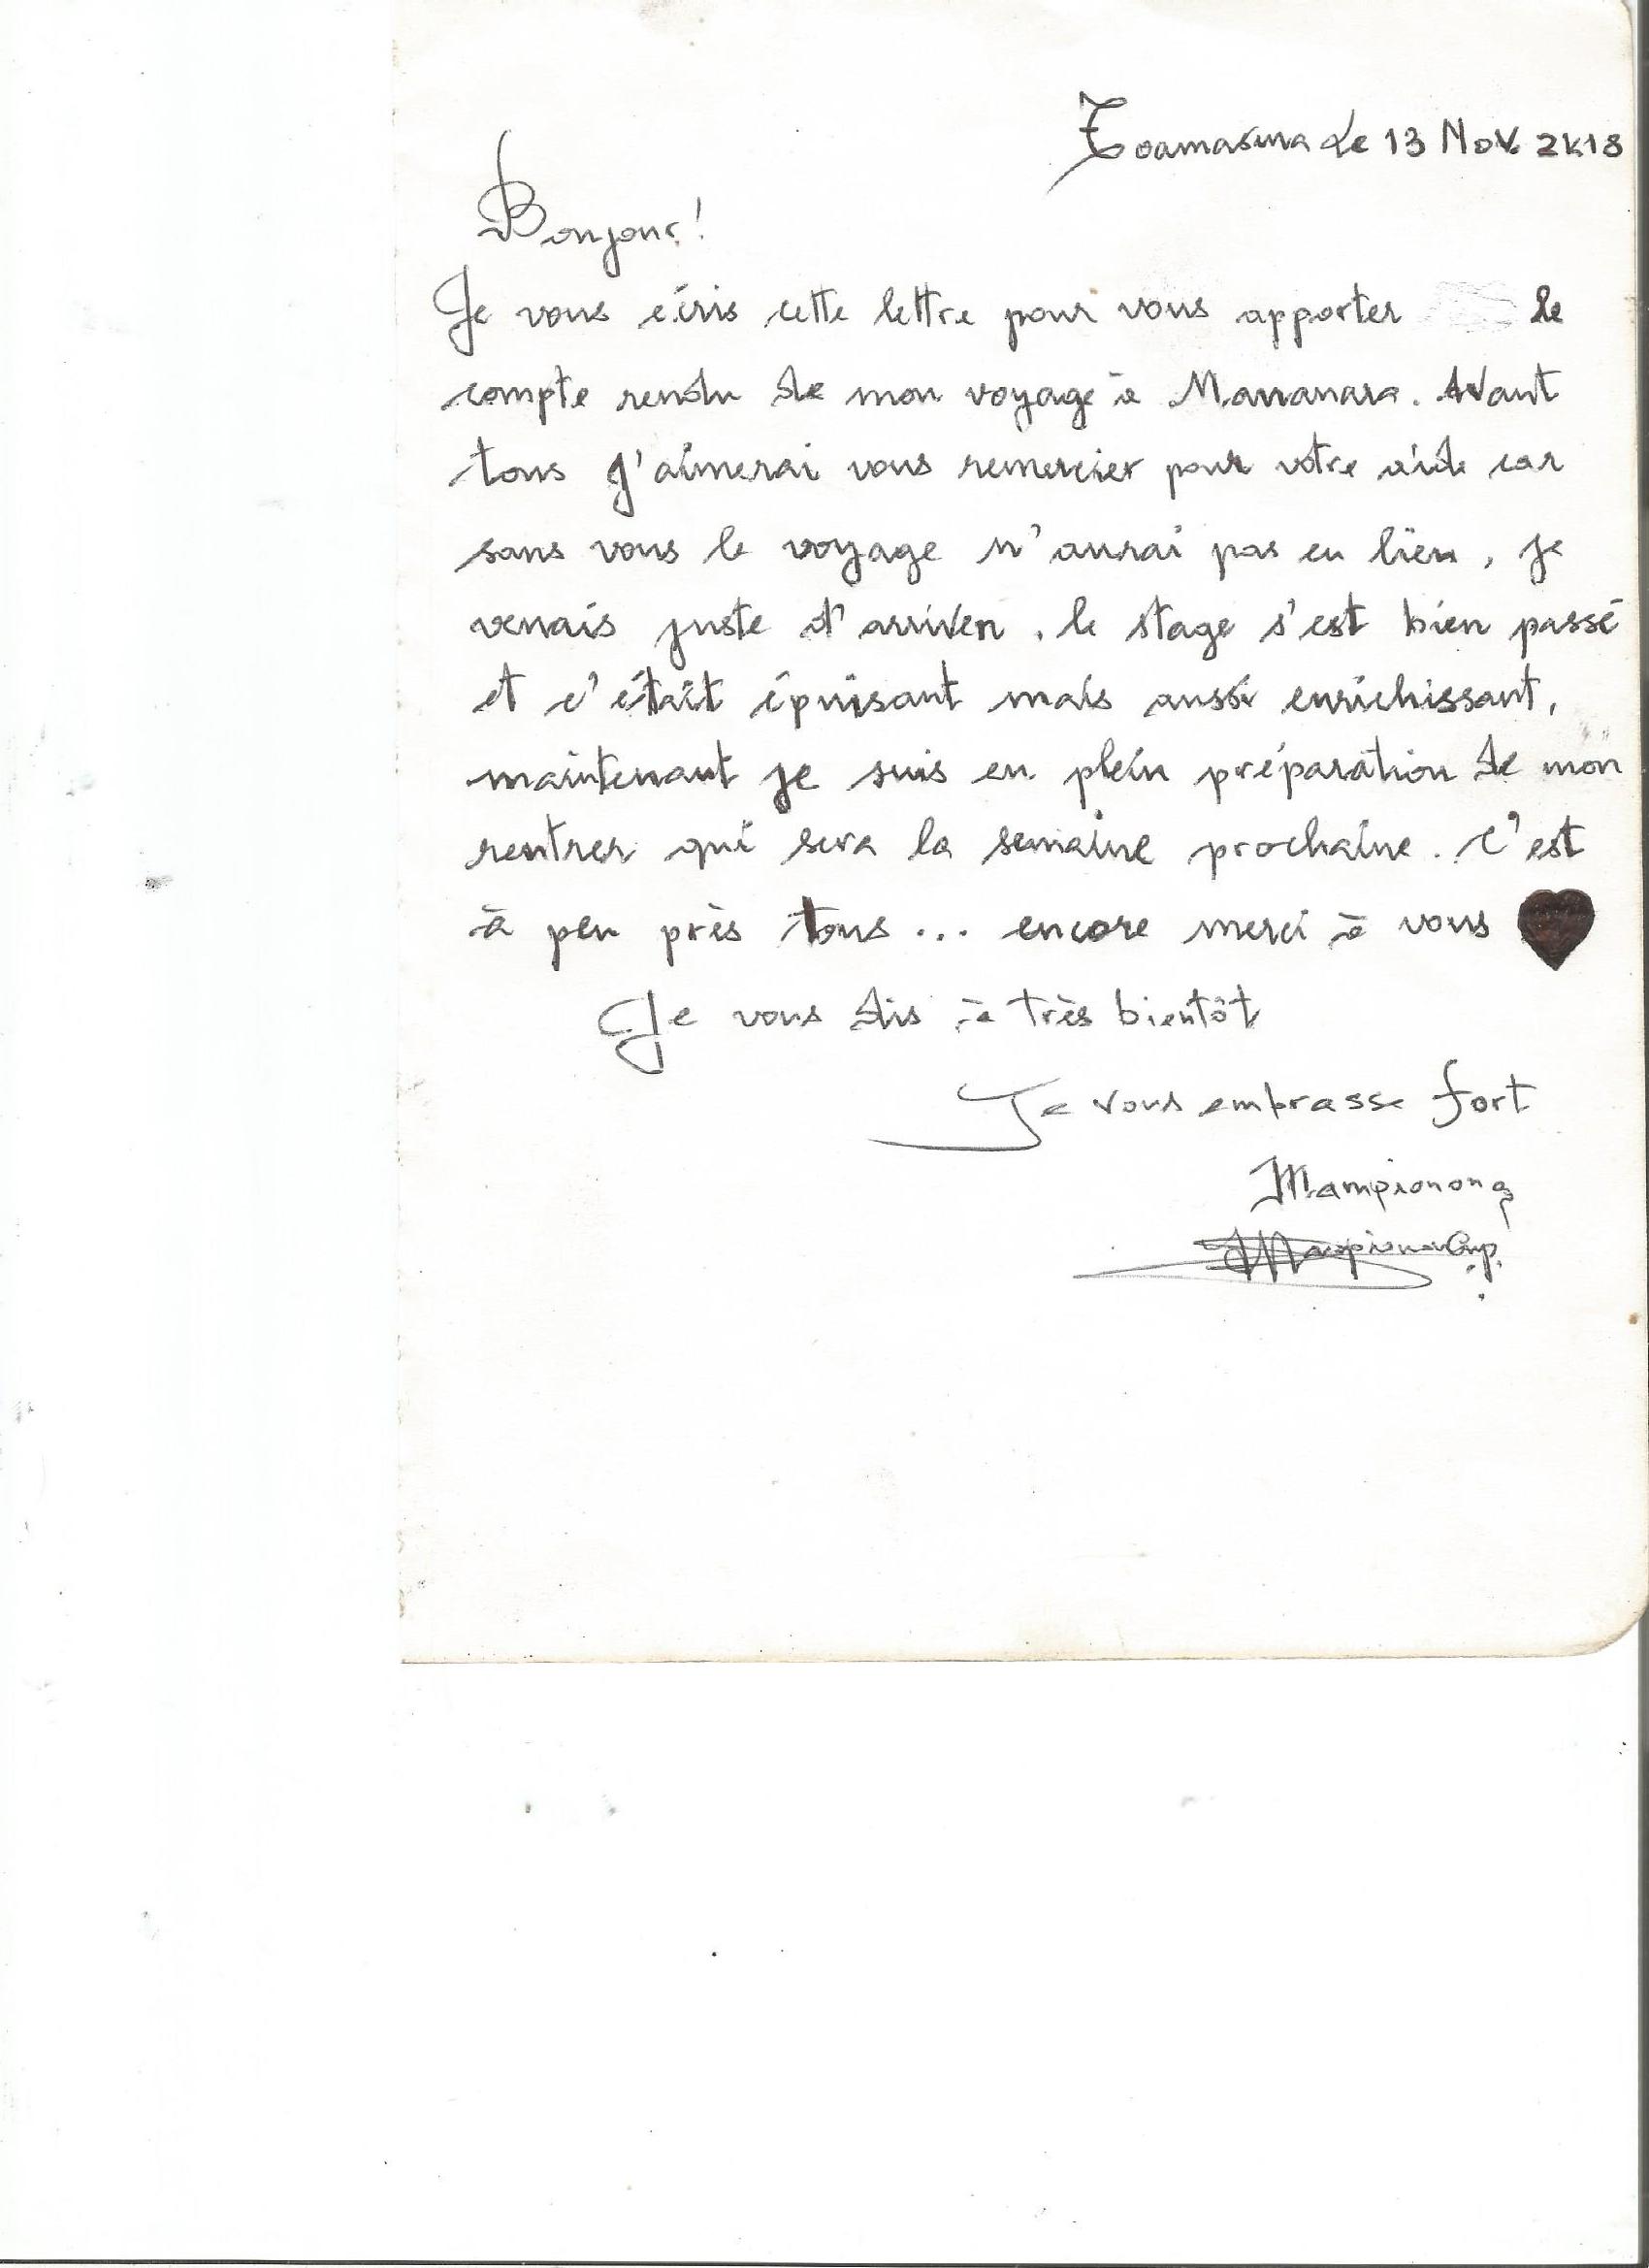 Toamasina Le 13 Nov. 2k18
Bonjour!
Je vous écris cette lettre pour vous apporter le
compte rendu de mon voyage à Mananara. Avant
tous J'aimerai vous remercier pour votre aide car
sans vous le voyage n'aurai pas eu lieu, je
venais juste d'arriver. le stage s'est bien passé
et c'était épuisant mais aussi enrichissant,
maintenant je suis en plein préparation de mon
rentrer qui sera la semaine prochaine. C'est
à peu près tous... encore merci à vous
Je vous dis à très bientôt
Je vous embrasse fort
Mampionona